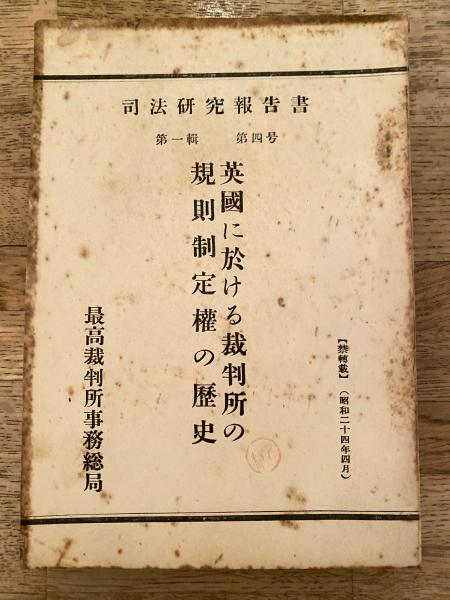 司法研究報告書
第一輯 第四号
【禁轉載】（昭和二十四年四月）
英國に於ける裁判所の
規則制定權の歷史
最高裁判所事務総局